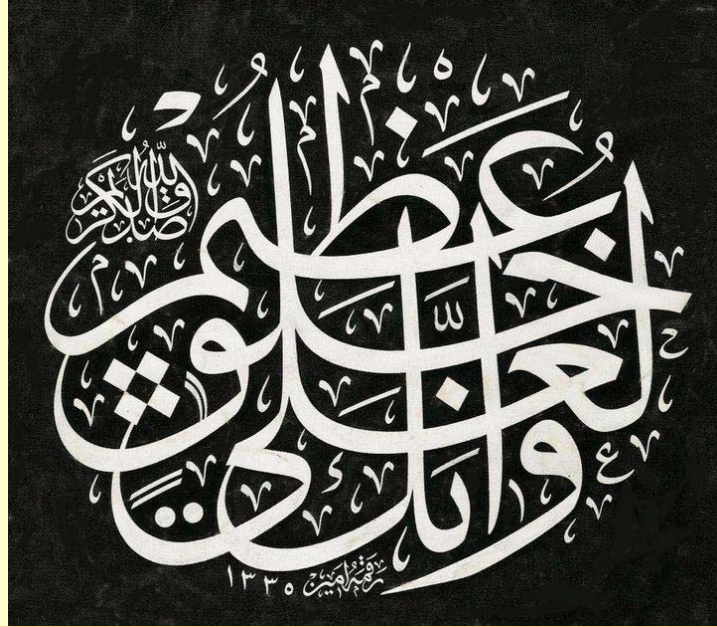 وإنك لعلى خلق عظيم
صدق الله الكريم
رقمه أمين
١٣٣٥